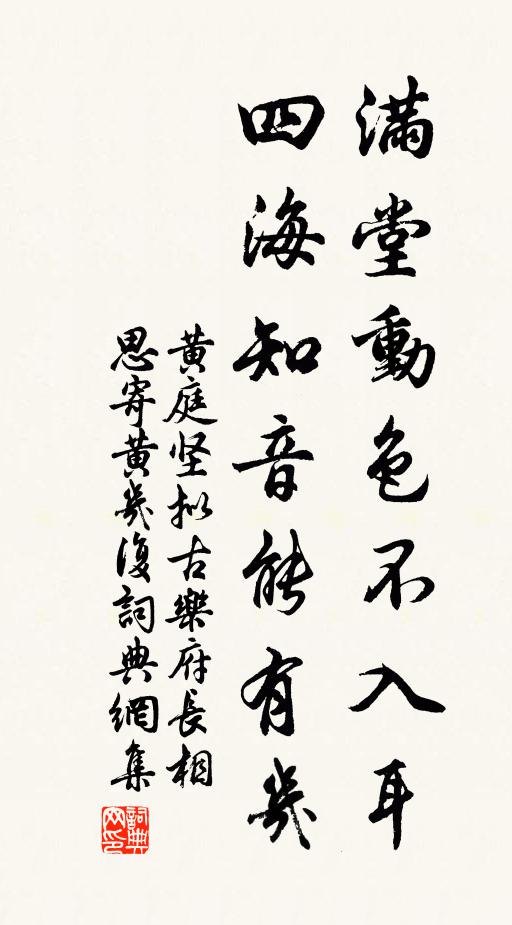 滿堂動色不入耳
四海知音能有幾
黄庭坚拟古樂府長相
思寄黄幾復詞典網集
詞典网印